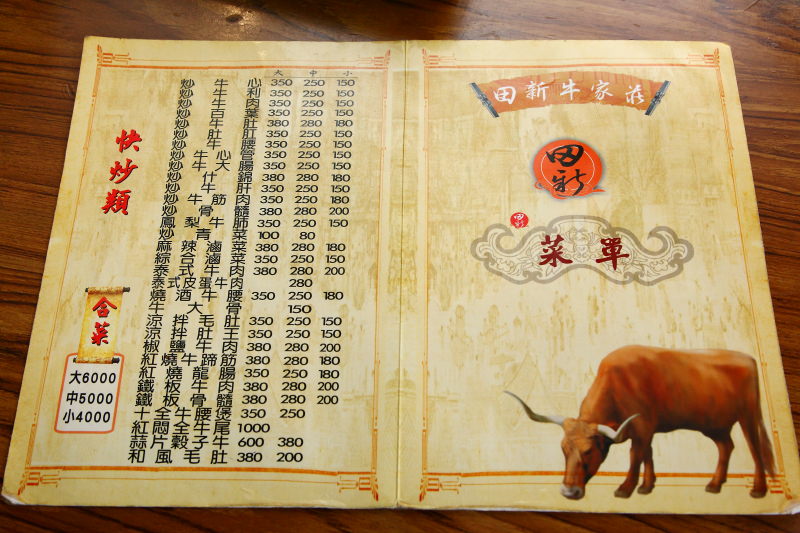 快炒類
大 中 小
炒牛心 350 250 150
炒牛利 350 250 150
炒牛肉 350 250 150
炒百葉 350 250 150
炒牛肚 380 280 180
炒肚肛 350 250 150
炒牛腰 350 250 150
炒心管 350 250 150
炒牛大腸 350 250 150
炒什錦 380 280 180
炒牛肝 350 250 150
炒牛筋肉 350 250 150
炒骨髓 380 280 200
鳳梨牛肺 350 250 150
炒青菜 100 80
麻辣滷菜 380 280 180
綜合滷菜 350 250 150
泰式牛肉 380 280 200
泰式皮蛋牛肉 280
燒酒牛腰 350 250 180
牛大骨 150
涼拌毛肚 350 250 150
涼拌肚王 350 250 150
椒鹽牛肉 380 280 200
紅燒牛蹄筋 380 280 180
紅燒龍腸 350 250 150
鐵板牛肉 380 280 200
鐵板骨髓 380 280 200
十全牛腰煲 350 250
紅悶全牛尾 1000
蒜片穀子牛 600 380
和風毛肚 380 200
合菜
大6000
中5000
小4000
田新牛家莊
田新
田新
菜單